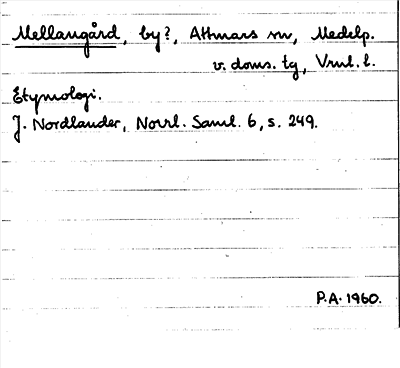 Mellangård, by?, Attmars sn, Medelp.
v. doms. tg, Vrnl. l.
Etymologi.
J. Nordlander, Norrl. Saml. 6, s. 249.
P.A. 1960.